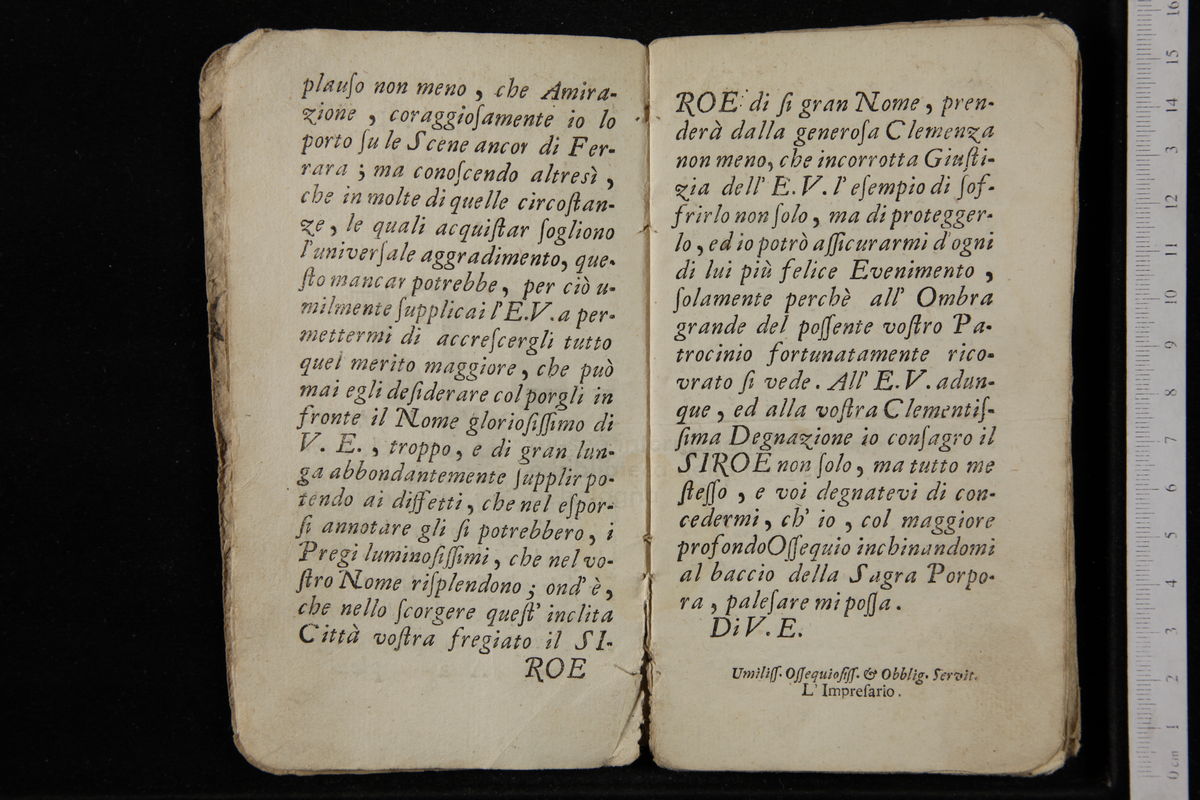 plauſo non meno, che Amira-
zione, coraggioſamente io lo
porto ſu le Scene ancor di Fer-
rara; ma conoſcendo altresì,
che in molte di quelle circoſtan-
ze, le quali acquiſtar ſogliono
l'univerſale aggradimento, que-
ſto mancar potrebbe, per ciò u-
milmente ſupplicai l'E.V. a per-
mettermi di accreſcergli tutto
quel merito maggiore, che può
mai egli deſiderare col porgli in
fronte il Nome glorioſiſſimo di
V. E., troppo, e di gran lun-
ga abbondantemente ſupplir po-
tendo ai diffetti, che nel eſpor-
ſi annotare gli ſi potrebbero, i
Pregi luminoſiſſimi, che nel vo-
ſtro Nome riſplendono; ond'è,
che nello ſcorgere queſt' inclita
Città voſtra fregiato il SI-
ROE
ROE di ſi gran Nome, pren-
derà dalla generoſa Clemenza
non meno, che incorrotta Giuſti-
zia dell' E.V. l' eſempio di ſof-
frirlo non ſolo, ma di protegger-
lo, ed io potrò aſſicurarmi d'ogni
di lui più felice Evenimento,
ſolamente perchè all' Ombra
grande del poſſente voſtro Pa-
trocinio fortunatamente rico-
vrato ſi vede. All' E.V. adun-
que, ed alla voſtra Clementiſ-
ſima Degnazione io conſagro il
SIROE non ſolo, ma tutto me
ſteſſo, e voi degnatevi di con-
cedermi, ch' io, col maggiore
profondo Oſſequio inchinandomi
al baccio della Sagra Porpo-
ra, paleſare mi poſſa.
Di V. E.
Umiliſſ. Oſſequioſiſſ. & Obblig. Servit.
L' Impreſario.
0 cm 1 2 3 4 5 6 7 8 9 10 11 12 3 14 15 16